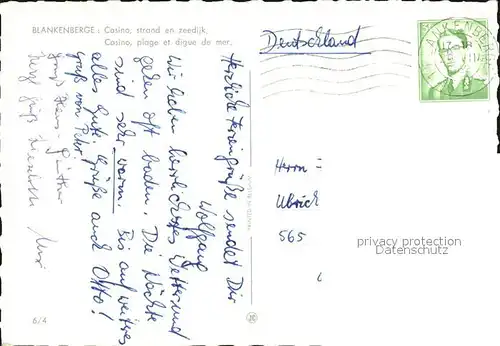 BLANKENBERGE : Casino, strand en zeedijk.
Casino, plage et digue de mer.
Herzliche Feriengrüße sendet Dir
Wolfgang
Wir haben herrliches Wetter und
gehen oft baden. Die Nächte
sind sehr warm. Bis auf weiteres
alles Gute Grüße auch Otto!
Gruß von Peter
Gruß Hans-Günther
Deutschland
BLANKENBERGE
Herrn
Ulrich
565
privacy protection
Datenschutz
6/4